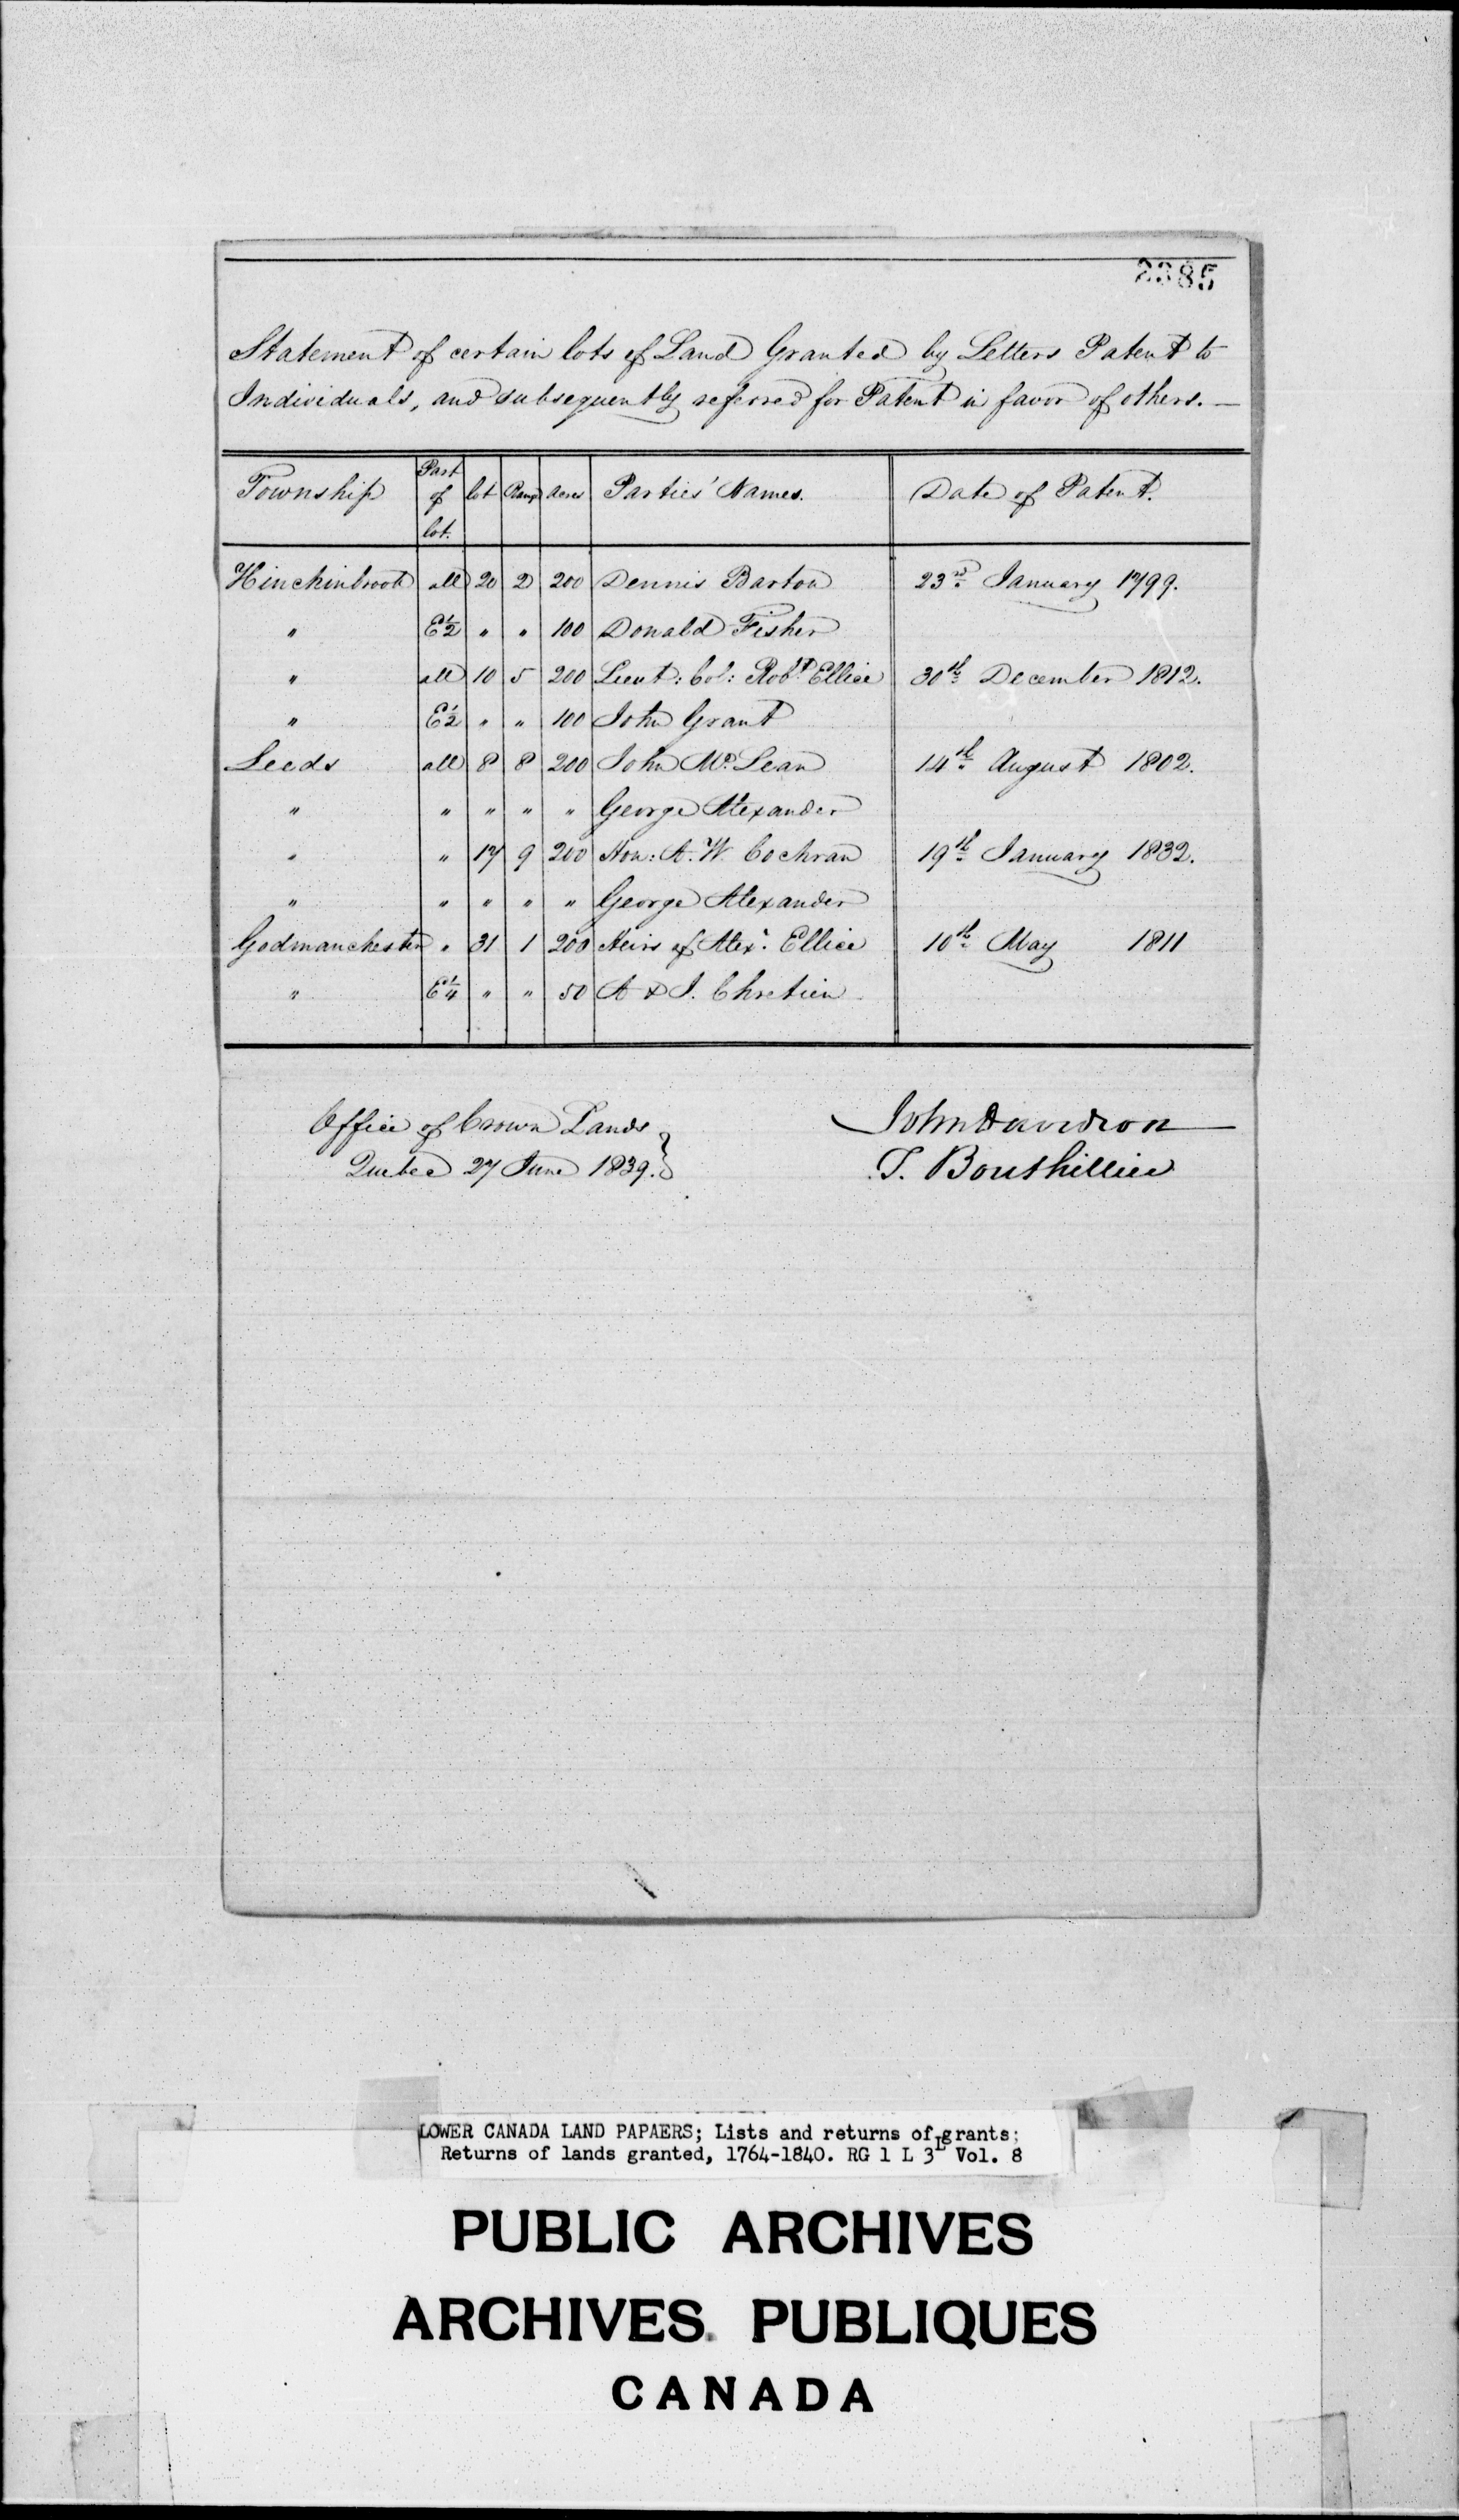 2385
Statement of certain lots of Land Granted by Letters Patent to
Individuals, and subsequently referred for Patent in favor of others. —
Township | Part of lot. | lot | Range | Acres | Parties' Names. | Date of Patent.
Hinchinbrook | all | 20 | 2 | 200 | Dennis Barton | 23rd January 1799.
" | E½ | " | " | 100 | Donald Fisher
" | all | 10 | 5 | 200 | Lieut: Col: Robt Ellice | 30th December 1812.
" | E½ | " | " | 100 | John Grant
Leeds | all | 8 | 8 | 200 | John Mc Lean | 14th August 1802.
" | " | " | " | " | George Alexander
" | " | 17 | 9 | 200 | Hon: A. W. Cochran | 19th January 1832.
" | " | " | " | " | George Alexander
Godmanchester | " | 31 | 1 | 200 | Heirs of Alexr. Ellice | 10th May 1811
" | E¼ | " | " | 50 | A & J. Chretien
Office of Crown Lands
Quebec 27 June 1839.
John Davidson
T. Bouthillier
LOWER CANADA LAND PAPAERS; Lists and returns of grants;
Returns of lands granted, 1764-1840. RG 1 L 3L Vol. 8
PUBLIC ARCHIVES
ARCHIVES PUBLIQUES
CANADA